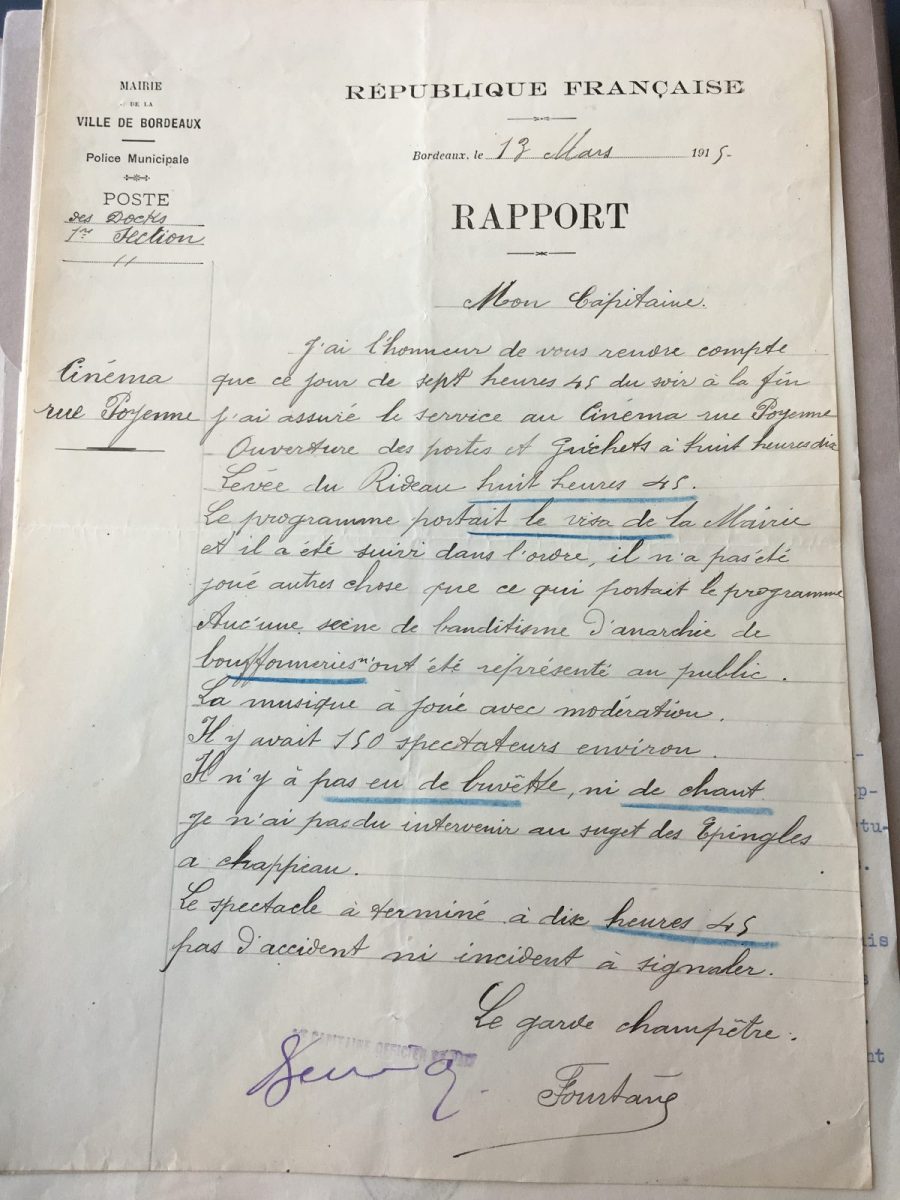 MAIRIE
DE LA
VILLE DE BORDEAUX
Police Municipale
POSTE
des Docks
1re Section
"
RÉPUBLIQUE FRANÇAISE
Bordeaux, le 13 Mars 1915-
RAPPORT
Mon Capitaine.
Cinéma
rue Poyenne
J'ai l'honneur de vous rendre compte
que ce jour de sept heures 45 du soir à la fin
j'ai assuré le service au Cinéma rue Poyenne
Ouverture des portes et Guichets à huit heures dix
Levée du Rideau huit heures 45.
Le programme portait le visa de la Mairie
et il a été suivi dans l'ordre, il n'a pas été
joué autres chose que ce qui portait le programme
Auc'une scène de banditisme d'anarchie de
bouffonneries n'ont été représenté au public.
La musique à joué avec modération.
Il y avait 150 spectateurs environ.
Il n'y à pas eu de buvêtte, ni de chant
Je n'ai pas du intervenir au suget des Epingles
a chappeau.
Le spectacle à terminé à dix heures 45
pas d'accident ni incident à signaler.
Le garde champêtre.
CAPITAINE OFFICIER DE
-
p-
tu-
.
is
nt